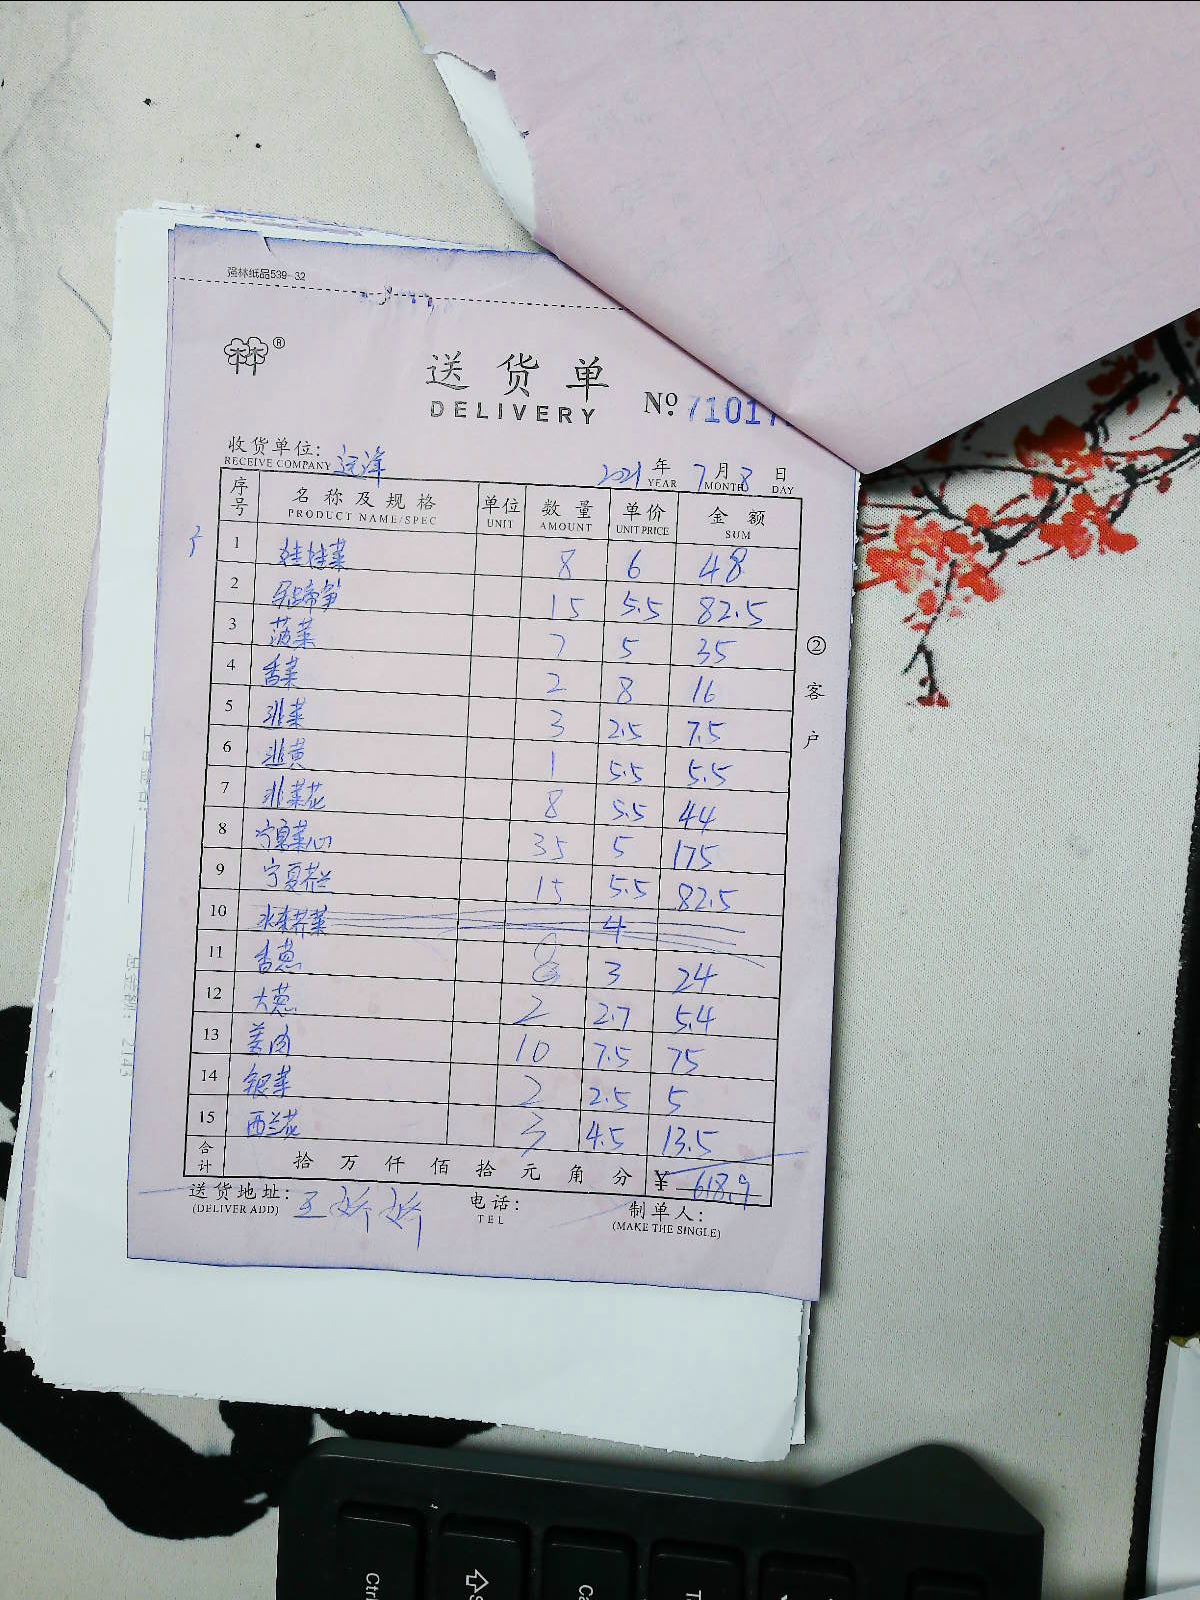 强林纸品539-32
林林®
送货单
DELIVERY
№ 7101
收货单位: 远洋 2021 年 7 月 8 日
RECEIVE COMPANY YEAR MONTH DAY
序号 名称及规格 单位 数量 单价 金额
PRODUCT NAME/SPEC UNIT AMOUNT UNIT PRICE SUM
1 娃娃菜 8 6 48
2 马蹄笋 15 5.5 82.5
3 菠菜 7 5 35
4 香菜 2 8 16
5 韭菜 3 2.5 7.5
6 韭黄 1 5.5 5.5
7 韭菜花 8 5.5 44
8 宁夏菜心 35 5 175
9 宁夏芥兰 15 5.5 82.5
10 水东芥菜 4
11 香葱 8 3 24
12 大葱 2 2.7 5.4
13 姜肉 10 7.5 75
14 银芽 2 2.5 5
15 西兰花 3 4.5 13.5
合计 拾万仟佰拾元角分 ¥ 618.9
送货地址: 电话: 制单人:
(DELIVER ADD) TEL (MAKE THE SINGLE)
②客户
2143
Ctr